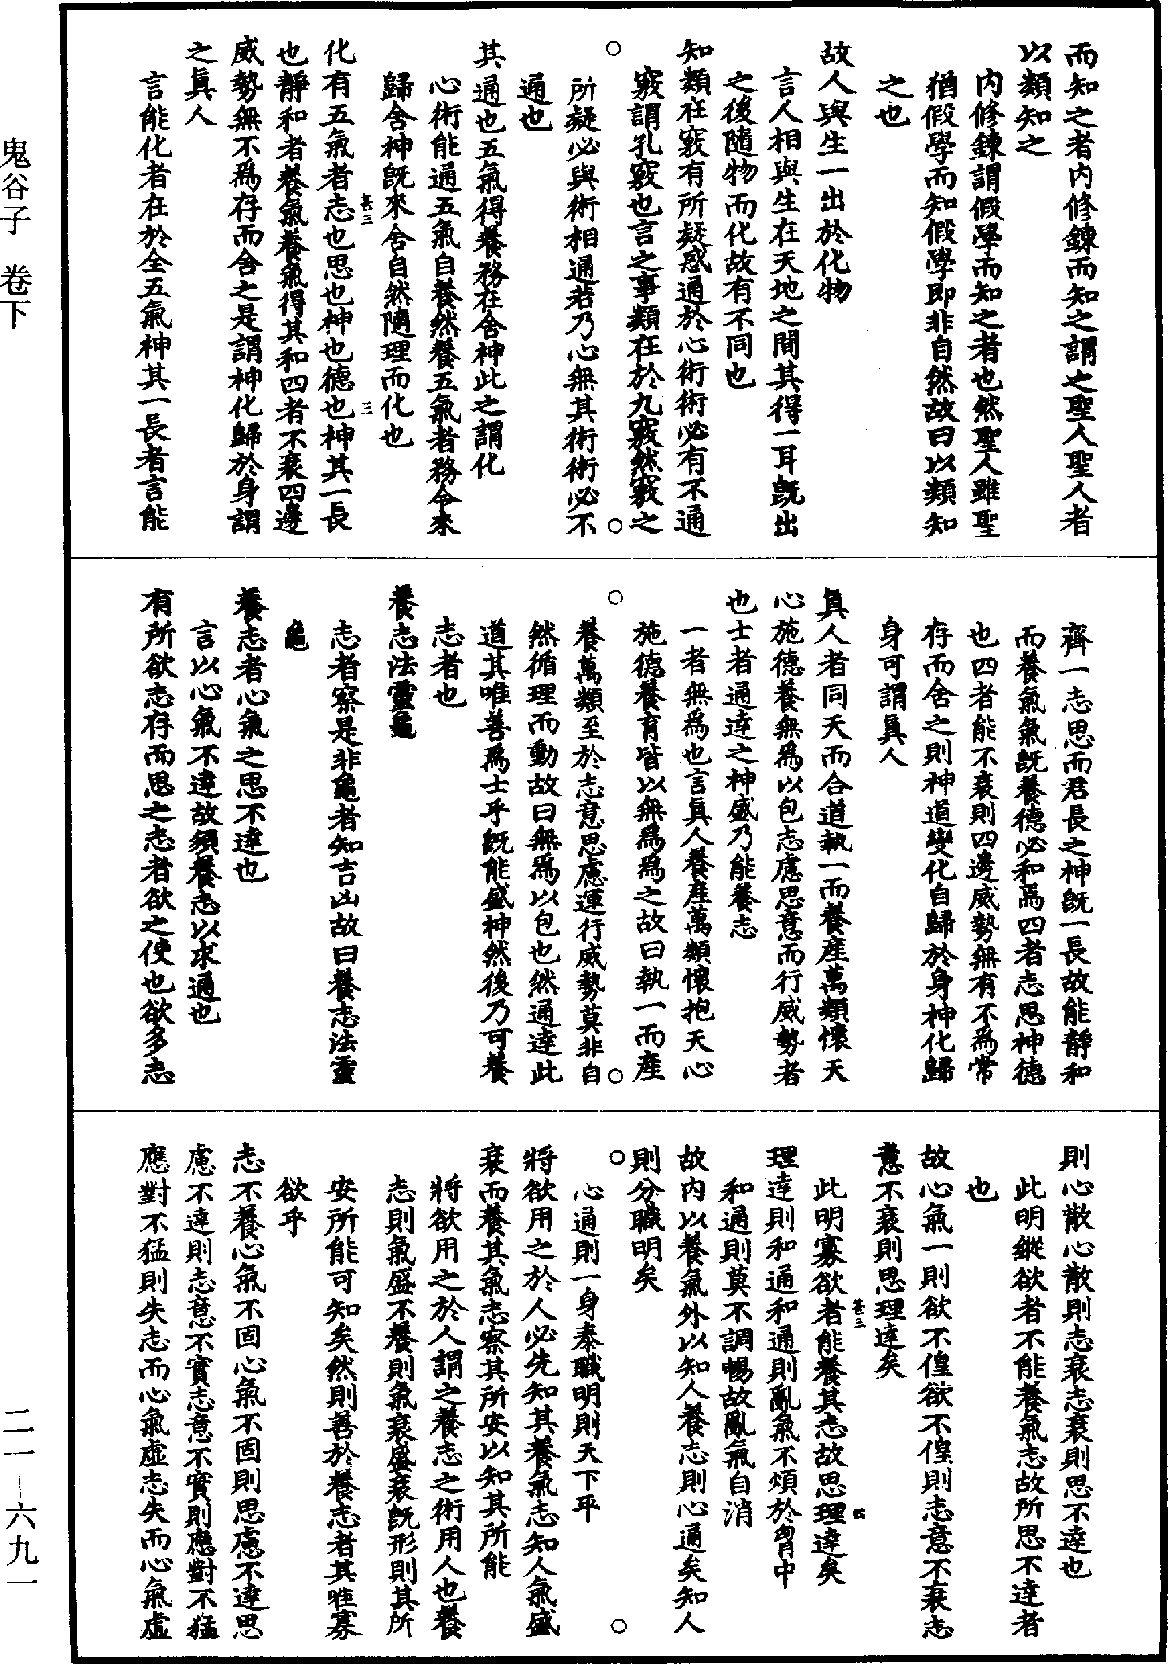 而知之者內修鍊而知之謂之聖人聖人者
以類知之
內修鍊謂假學而知之者也然聖人雖聖
猶假學而知假學即非自然故曰以類知
之也
故人與生一出於化物
言人相與生在天地之間其得一耳既出
之後隨物而化故有不同也
知類在竅有所疑惑通於心術術必有不通
竅謂孔竅也言之事類在於九竅然竅之
所疑必與術相通若乃心無其術術必不
通也
其通也五氣得養務在舍神此之謂化
心術能通五氣自養然養五氣者務令來
歸舍神既來舍自然隨理而化也
化有五氣者志也思也神也德也神其一長
也靜和者養氣養氣得其和四者不衰四邊
威勢無不為存而舍之是謂神化歸於身謂
之真人
言能化者在於全五氣神其一長者言能
齊一志思而君長之神既一長故能靜和
而養氣氣既養德必和焉四者志思神德
也四者能不衰則四邊威勢無有不為常
存而舍之則神道變化自歸於身神化歸
身可謂真人
真人者同天而合道執一而養產萬類懷天
心施德養無為以包志慮思意而行威勢者
也士者通達之神盛乃能養志
一者無為也言真人養產萬類懷抱天心
施德養育皆以無為為之故曰執一而產
養萬類至於志意思慮運行威勢莫非自
然循理而動故曰無為以包也然通達此
道其唯善為士乎既能盛神然後乃可養
志者也
養志法靈龜
志者察是非龜者知吉凶故曰養志法靈
龜
養志者心氣之思不達也
言以心氣不達故須養志以求通也
有所欲志存而思之志者欲之使也欲多志
則心散心散則志衰志衰則思不達也
此明縱欲者不能養氣志故所思不達者
也
故心氣一則欲不偟欲不偟則志意不衰志
意不衰則思理達矣
此明寡欲者能養其志故思理達矣
理達則和通和通則亂氣不煩於胷中
和通則莫不調暢故亂氣自消
故內以養氣外以知人養志則心通矣知人
則分職明矣
心通則一身泰職明則天下平
將欲用之於人必先知其養氣志知人氣盛
衰而養其氣志察其所安以知其所能
將欲用之於人謂之養志之術用人也養
志則氣盛不養則氣衰盛衰既形則其所
安所能可知矣然則善於養志者其唯寡
欲乎
志不養心氣不固心氣不固則思慮不達思
慮不達則志意不實志意不實則應對不猛
應對不猛則失志而心氣虛志失而心氣虛
鬼谷子 卷下
二一—六九一